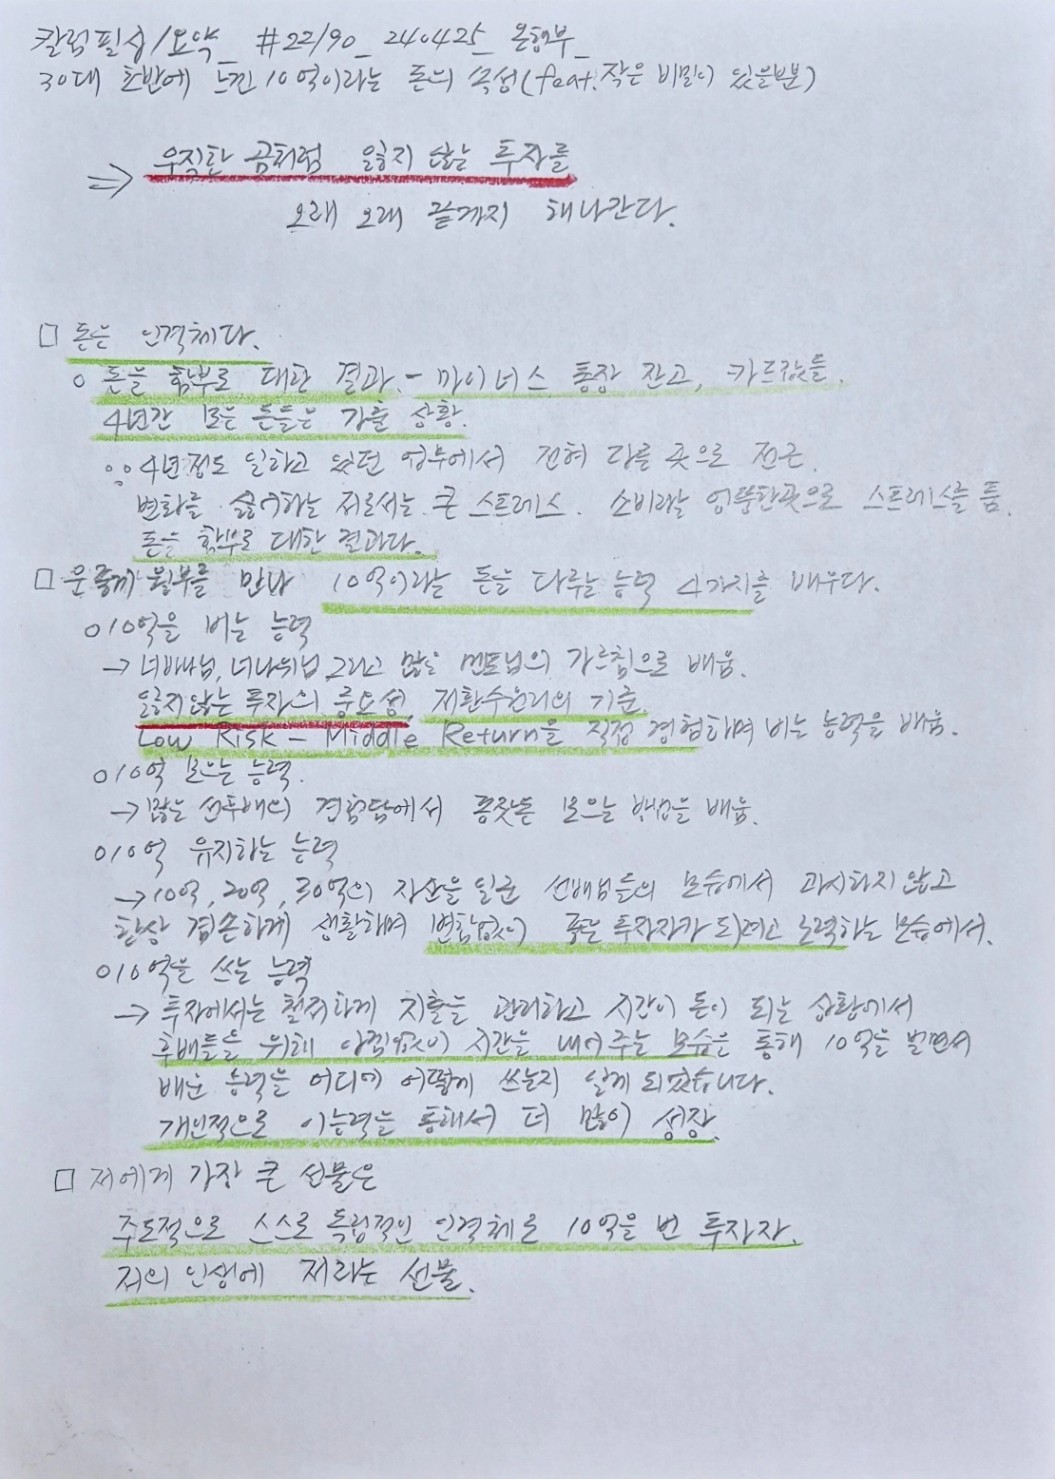 칼럼필사/요약_ #22/90_ 240425_ 온형부_
30대 초반에 느낀 10억이라는 돈의 속성(feat. 작은 비밀이 있을분)
⇒ 우직한 곰처럼 잃지 않는 투자를
오래 오래 끝까지 해나간다.
□ 돈은 인격체다.
○ 돈을 함부로 대한 결과. - 마이너스 통장 잔고, 카드값들.
4년간 모은 돈들은 감춘 상황.
∵ 4년정도 일하고 있던 업무에서 전혀 다른 곳으로 전근.
변화를 싫어하는 저로서는 큰 스트레스. 소비라는 엉뚱한곳으로 스트레스를 품.
돈을 함부로 대한 결과다.
□ 운좋게 월부를 만나 10억이라는 돈을 다루는 능력 4가지를 배우다.
○10억을 버는 능력
→ 너바나님, 너나위님 그리고 많은 멘토님의 가르침으로 배움.
잃지않는 투자의 중요성, 저환수원리의 기준.
Low Risk - Middle Return을 직접 경험하며 버는 능력을 배움.
○10억 모으는 능력.
→ 많은 선후배의 경험담에서 종잣돈 모으는 방법을 배움.
○10억 유지하는 능력
→ 10억, 20억, 30억의 자산을 일군 선배님들의 모습에서 과시하지 않고
항상 겸손하게 생활하며 변함없이 좋은 투자자가 되려고 노력하는 모습에서.
○10억을 쓰는 능력
→ 투자에서는 철저하게 지출을 관리하고 시간이 돈이 되는 상황에서
후배들을 위해 아낌없이 시간을 내어 주는 모습을 통해 10억을 벌면서
배운 능력을 어디에 어떻게 쓰는지 알게 되었습니다.
개인적으로 이능력을 통해서 더 많이 성장.
□ 저에게 가장 큰 선물은
주도적으로 스스로 독립적인 인격체로 10억을 번 투자자.
저의 인생에 저라는 선물.